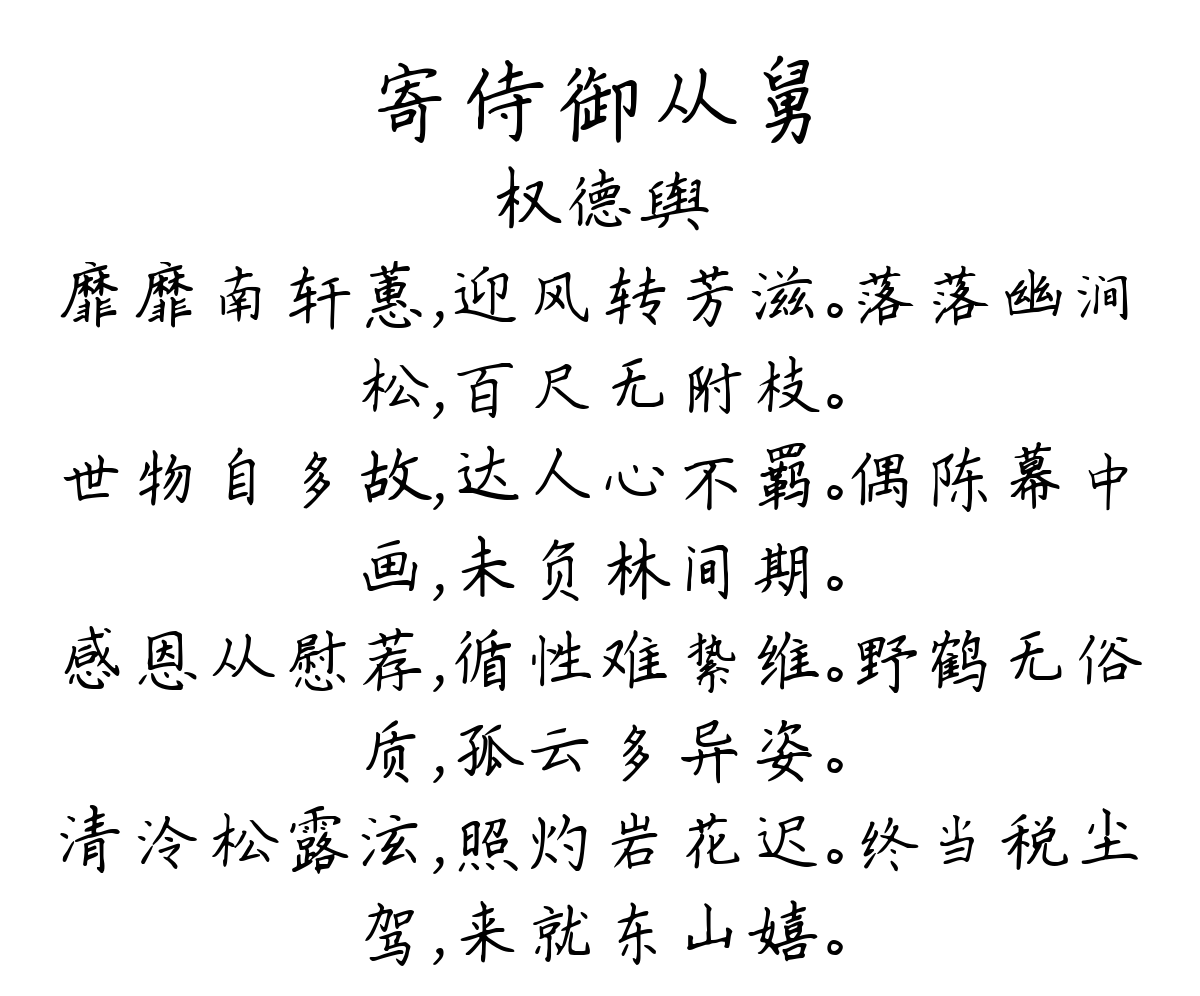 寄侍御从舅
权德舆
靡靡南轩蕙,迎风转芳滋。落落幽涧
松,百尺无附枝。
世物自多故,达人心不羁。偶陈幕中
画,未负林间期。
感恩从慰荐,循性难絷维。野鹤无俗
质,孤云多异姿。
清泠松露泫,照灼岩花迟。终当税尘
驾,来就东山嬉。